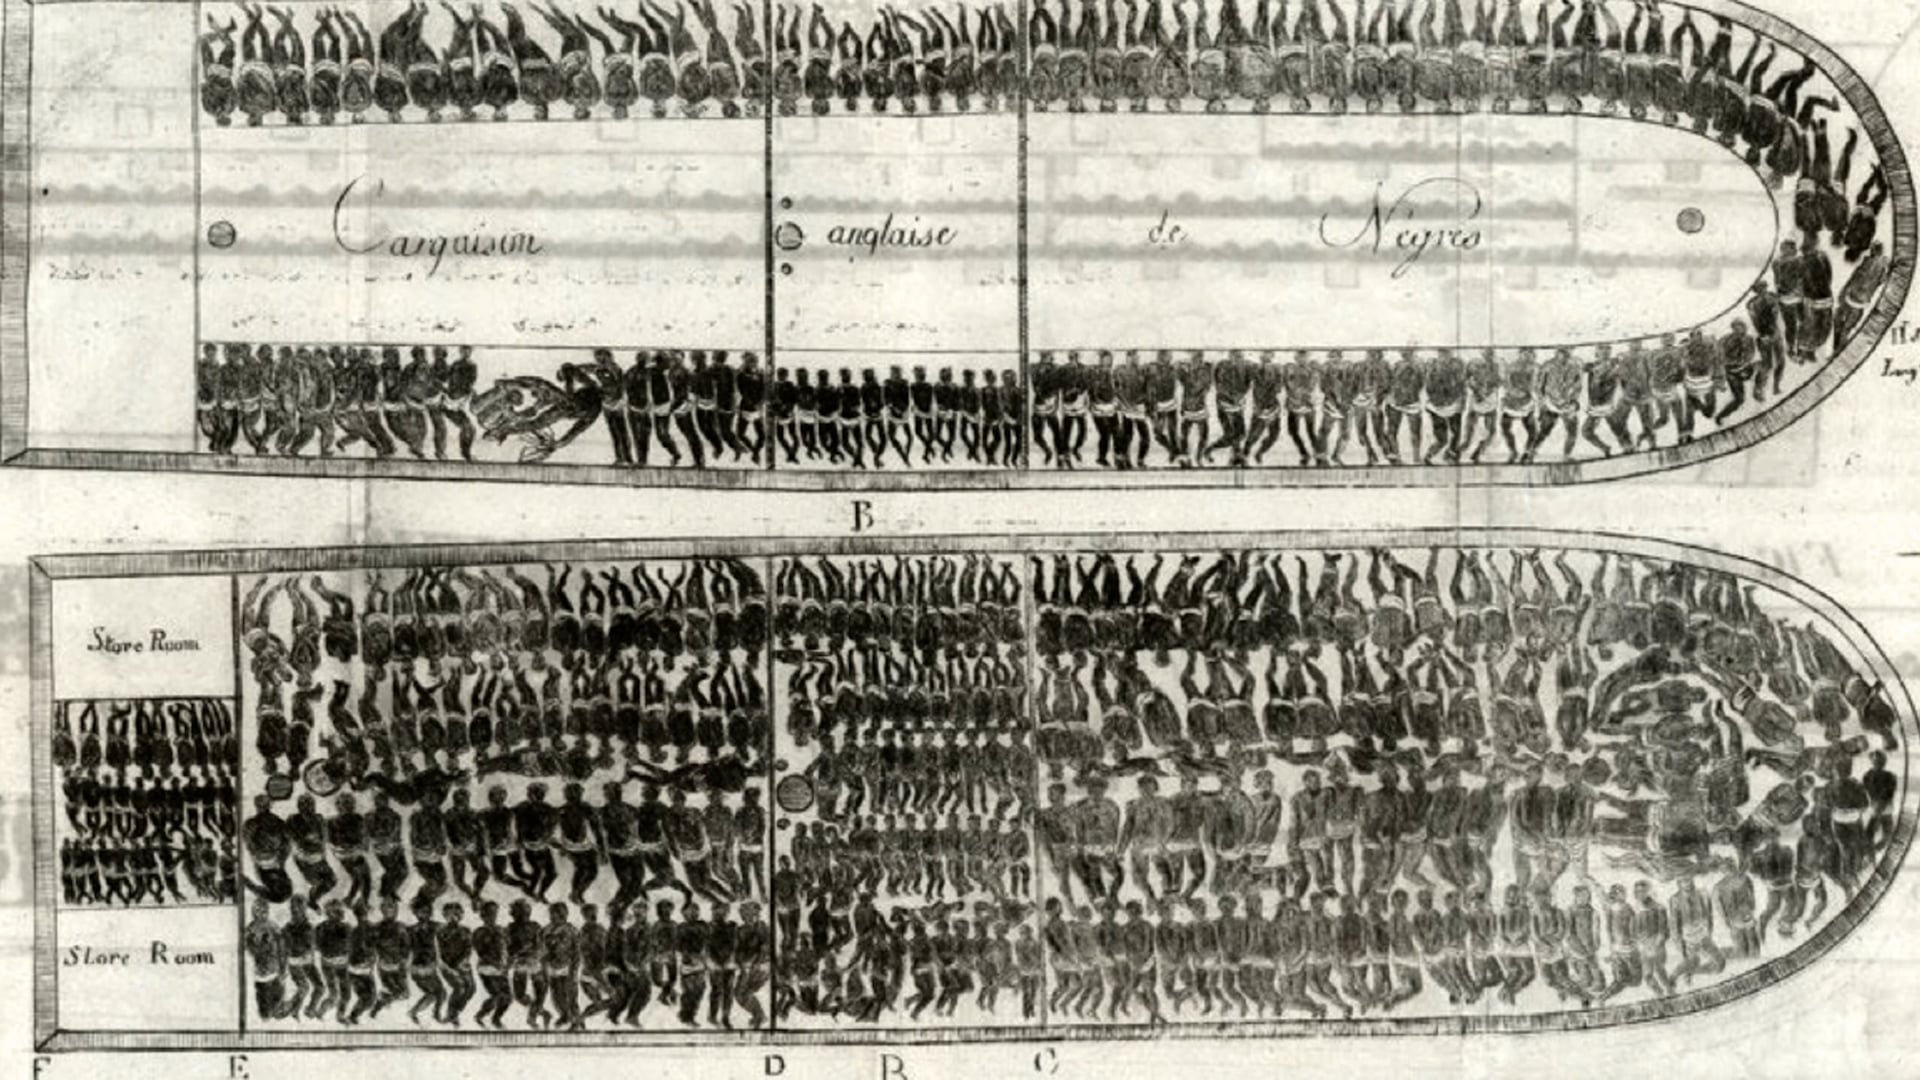 Cargaison anglaise de Négres
B
Store Room
Store Room
F E D B C